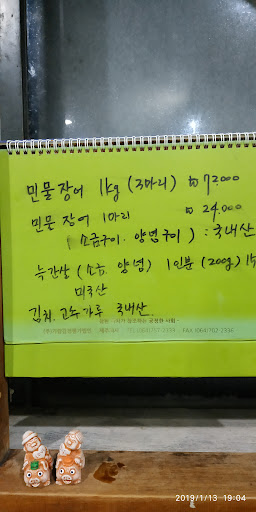 민물장어 1kg (3마리) ₩72.000
민믈 장어 1마리 ₩ 24.000
(소금구이. 양념구이) : 국내산
늑간살 (소금. 양념) 1인분 (200g) 15
미국산
김치. 고추가루 국내산.
FAX (064)702-2336
2019/1/13 19:04